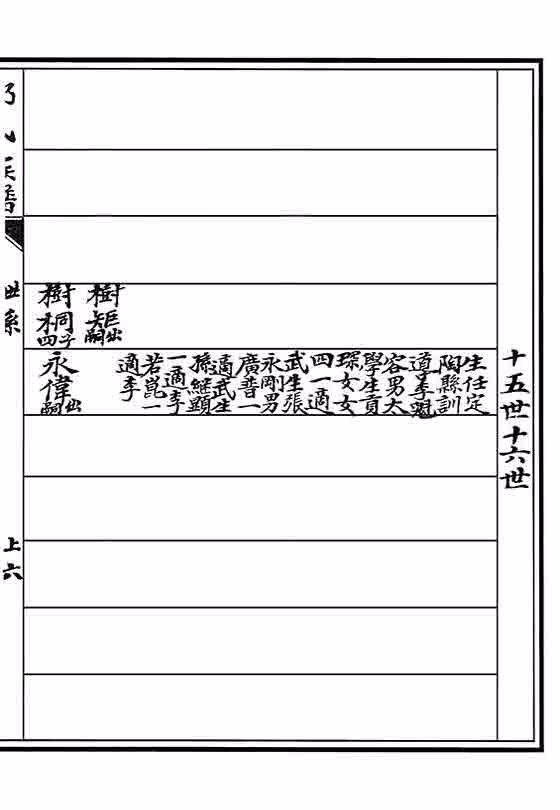 十五世十六世
樹矩出嗣
樹桐四子
生任定
陶縣訓
導李魁
容男大
學生貢
琛女女
四一適
武生張
永剛男
廣普一
適武生
孫繼顯
一適李
若崑一
適李
永偉出嗣
世系
上六